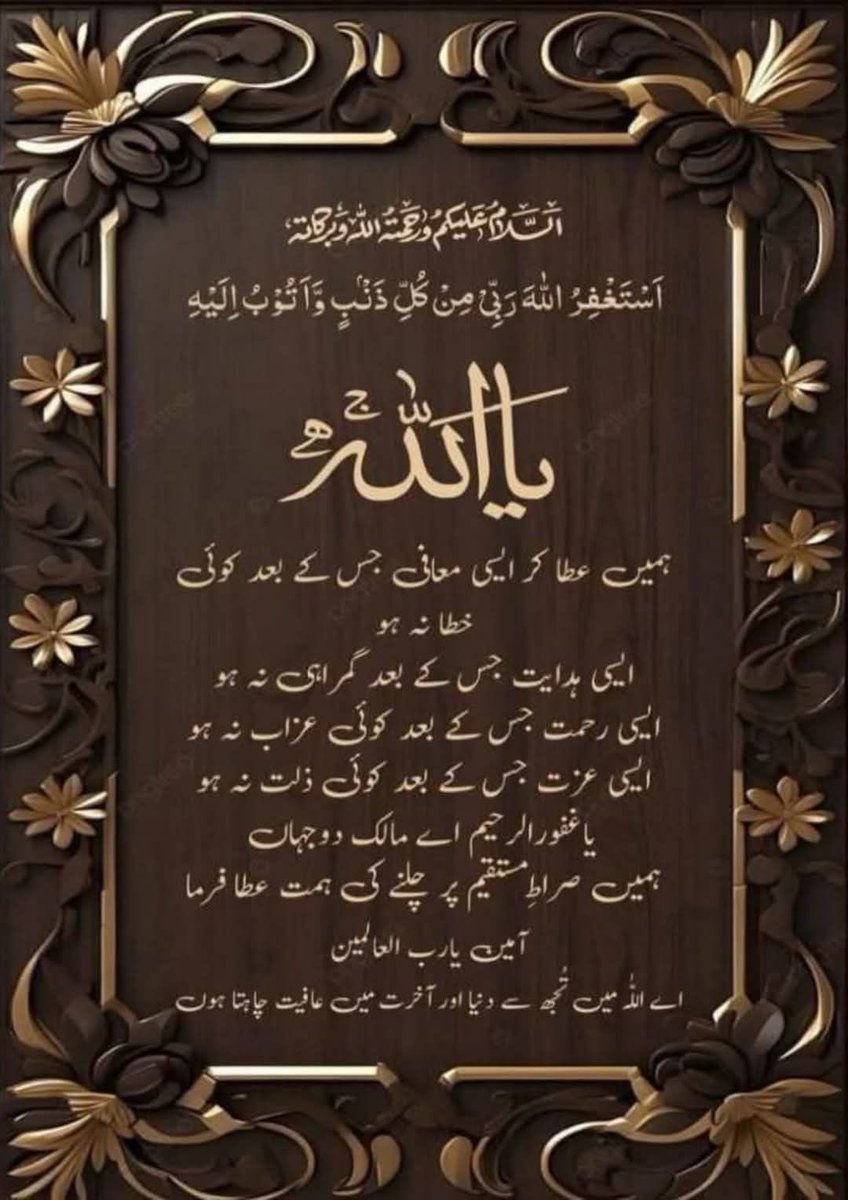 السلام علیکم ورحمتہ اللہ وبرکاتہ
اَسْتَغْفِرُ اللهَ رَبِّیْ مِنْ کُلِّ ذَنْۢبٍ وَّاَتُوْبُ اِلَیْهِ
یا اللہ
ہمیں عطا کر ایسی معافی جس کے بعد کوئی
خطا نہ ہو
ایسی ہدایت جس کے بعد گمراہی نہ ہو
ایسی رحمت جس کے بعد کوئی عزاب نہ ہو
ایسی عزت جس کے بعد کوئی ذلت نہ ہو
یاغفورالرحیم اے مالک دوجہاں
ہمیں صراطِ مستقیم پر چلنے کی ہمت عطا فرما
آمین یارب العالمین
اے اللہ میں تُجھ سے دنیا اور آخرت میں عافیت چاہتا ہوں